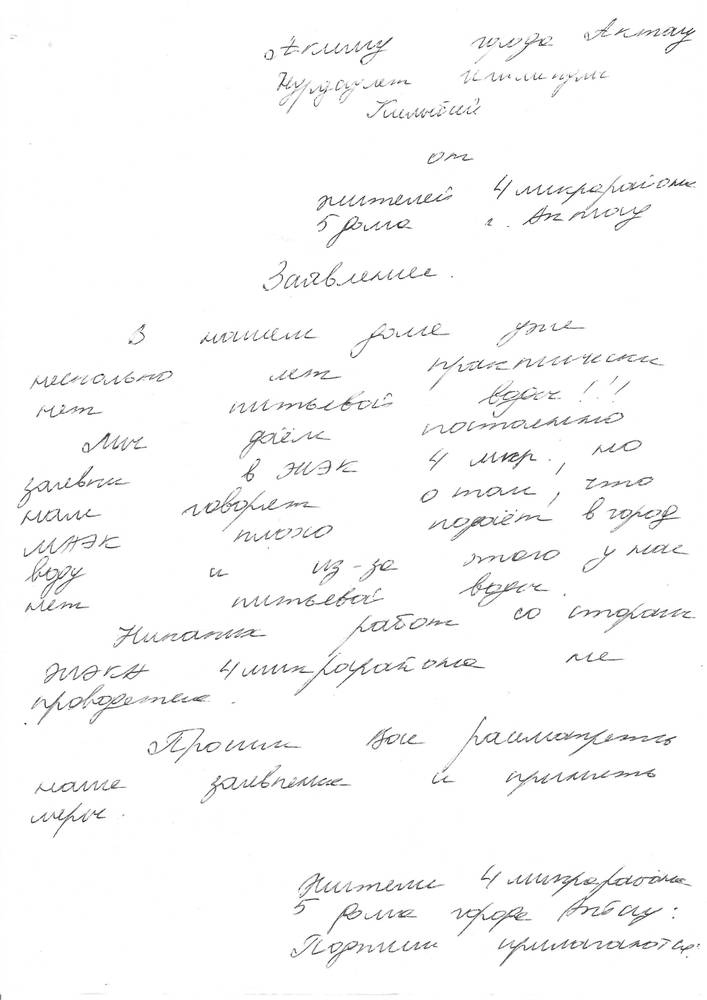 Акиму города Актау
Нурдаулет
от
жителей 4 микрорайона
5 дома г. Актау
Заявление.
В нашем доме уже
несколько лет практически
нет питьевой воды!!!
Мы даём постоянно
заявки в ЖЭК 4 мкр., но
нам говорят о том, что
МАЭК плохо подаёт в город
воду и из-за этого у нас
нет питьевой воды.
Никаких работ со стороны
ЖЭКА 4 микрорайона не
проводится.
Просим Вас рассмотреть
наше заявление и принять
меры.
Жители 4 микрорайона
5 дома города Актау:
Подписи прилагаются: